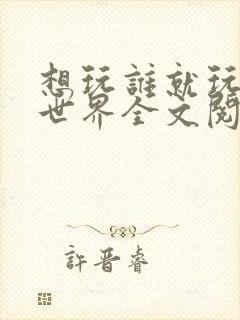 想玩誰就玩
世界全文閱
許晋睿